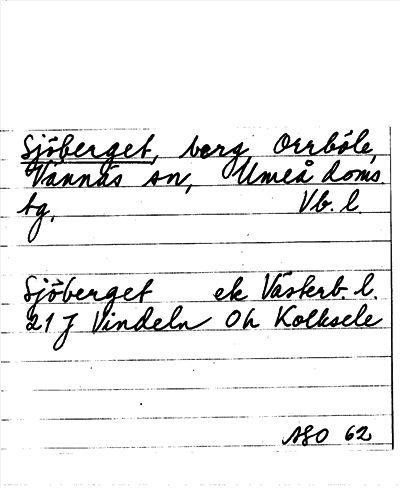 Sjöberget, berg Orrböle,
Vännäs sn, Umeå doms.
tg, Vb. l.
Sjöberget ek Västerb. l.
21 J Vindeln Oh Kolksele
ASO 62